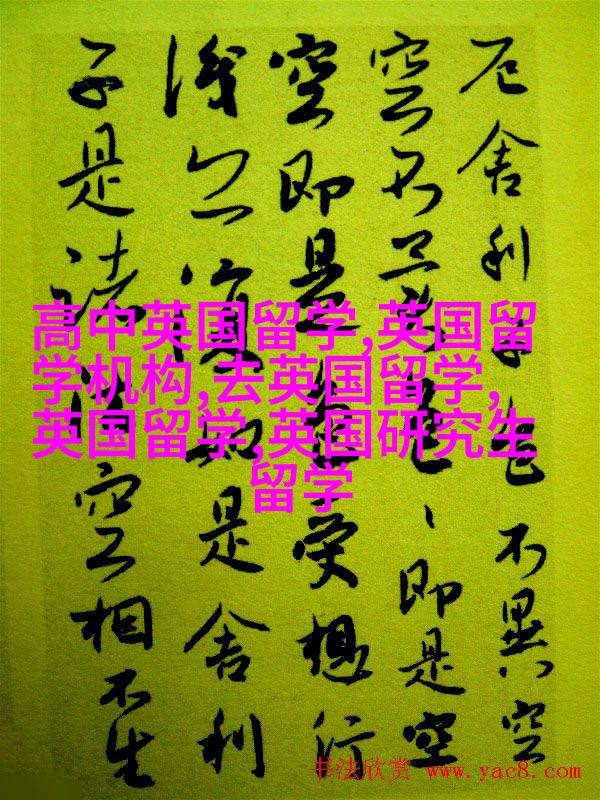 厄舍利子色不異空
空不異色、即是空
空即是色受想行
識亦復如是舍利
子是諸法空相不生
高中英国留学,英国留
学机构,去英国留学,
英国留学,英国研究生
留学
书法欣赏 www.yac8.com